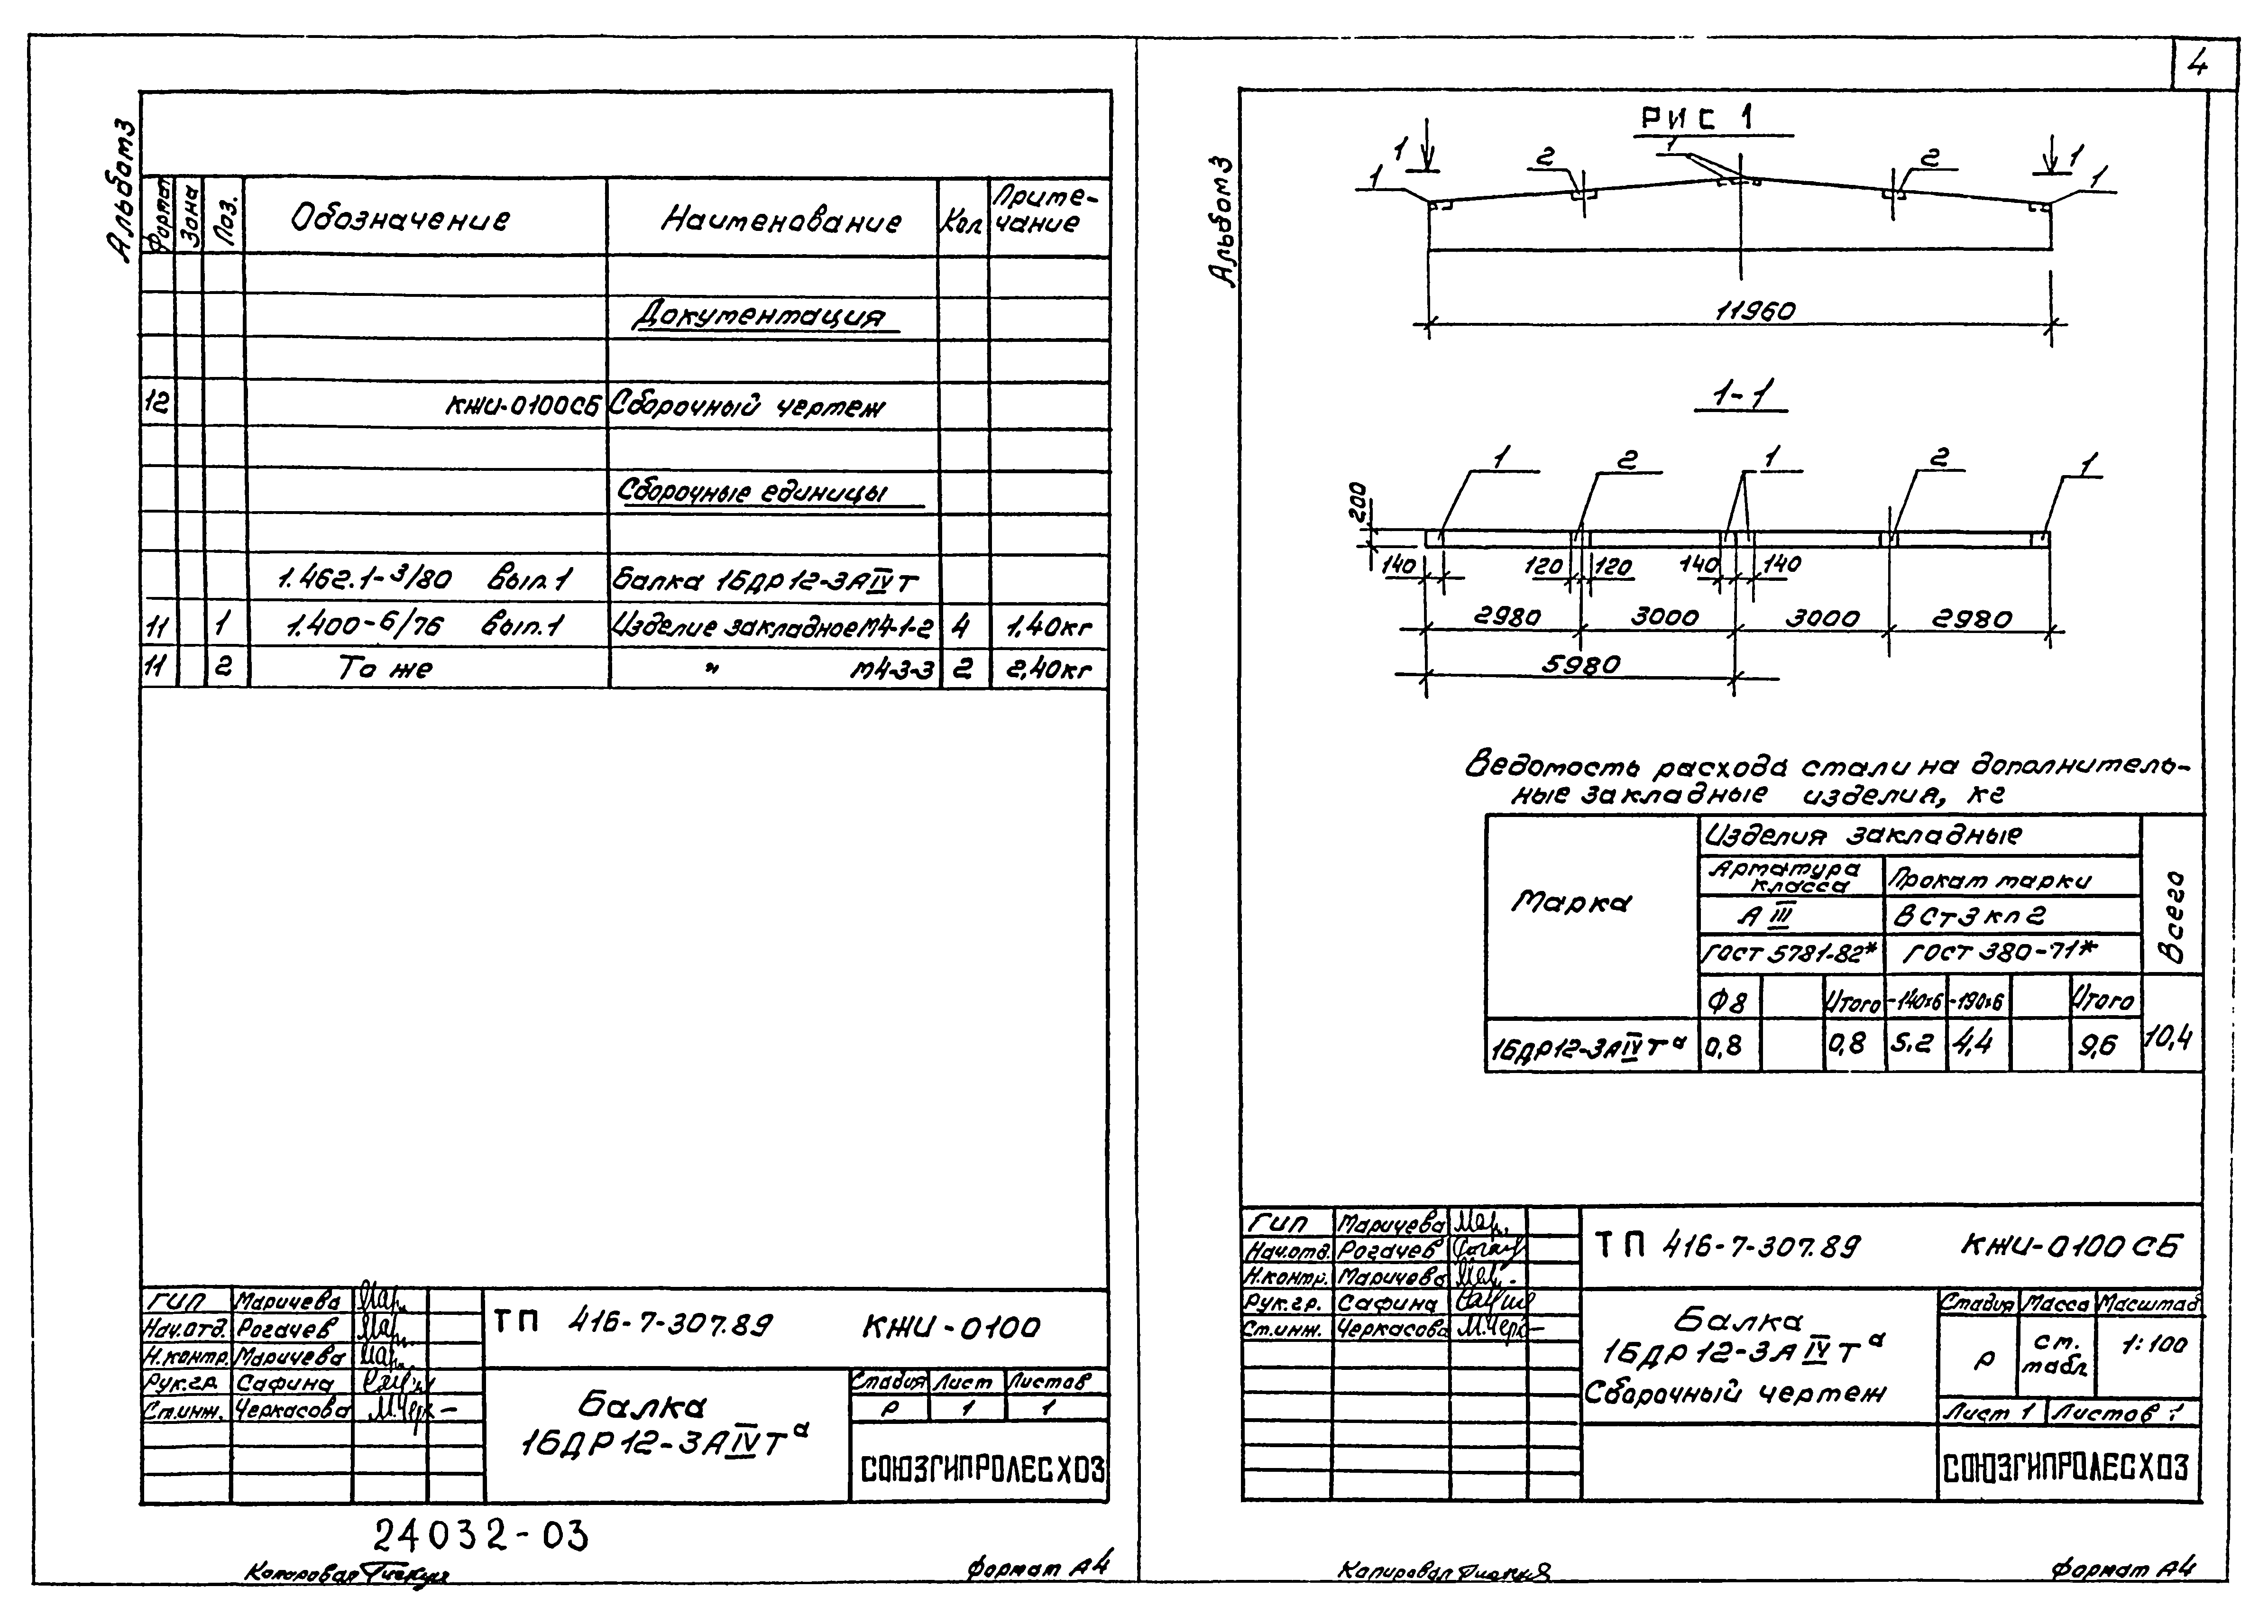 4
Альбом 3
Формат Зона Поз. Обозначение Наименование Кол Приме-
чание
Документация
12 КЖИ-0100СБ Сборочный чертеж
Сборочные единицы
1.462.1-3/80 Вып.1 Балка 1БДР12-3АIVТ
11 1 1.400-6/76 Вып.1 Изделие закладное М4-1-2 4 1,40кг
11 2 То же " М4-3-3 2 2,40кг
ГИП Маричева
Нач.отд. Рогачев
Н.контр. Маричева
Рук.гр. Сафина
Ст.инж. Черкасова
ТП 416-7-307.89 КЖИ-0100
Балка
1БДР12-3АIVТа
Стадия Лист Листов
Р 1 1
СОЮЗГИПРОЛЕСХОЗ
24032-03
Копировал
Формат А4
Альбом 3
РИС 1
1 1 2 1 2 1 1
11960
1-1
1 2 1 2 1
200
140 120 120 140 140
2980 3000 3000 2980
5980
Ведомость расхода стали на дополнитель-
ные закладные изделия, кг
Марка
Изделия закладные
Всего
Арматура
класса
Прокат марки
АIII ВСт3кп2
ГОСТ 5781-82* ГОСТ 380-71*
Ф8 Итого -140х6 -190х6 Итого
1БДР12-3АIVТа 0,8 0,8 5.2 4,4 9,6 10,4
ГИП Маричева
Нач.отд. Рогачев
Н.контр. Маричева
Рук.гр. Сафина
Ст.инж. Черкасова
ТП 416-7-307.89 КЖИ-0100СБ
Балка
1БДР12-3АIVТа
Сборочный чертеж
Стадия Масса Масштаб
Р см.
табл 1:100
Лист 1 Листов 1
СОЮЗГИПРОЛЕСХОЗ
Копировал
Формат А4